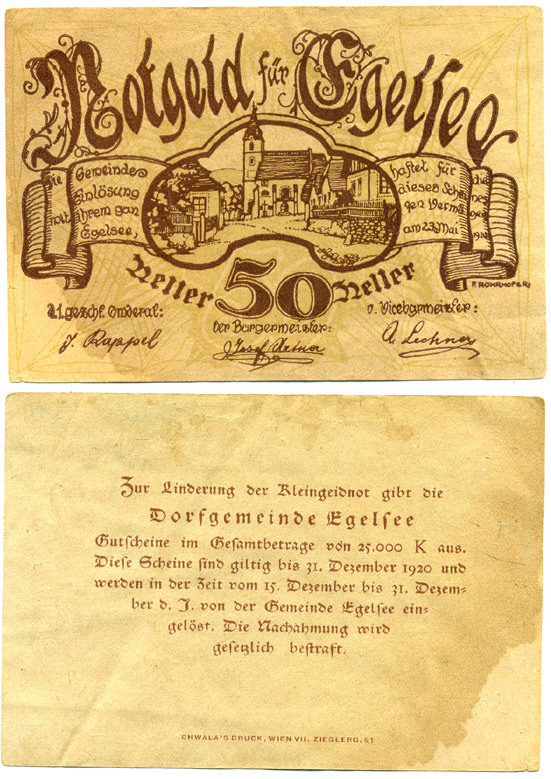 Notgeld für Egelsee
Die Gemeinde haftet für die
Einlösung diesen Schei nes
mit ihrem gan gen Vermö gen
Egelsee, am 23. Mai 1920
Heller 50 Heller
F. ROHRHOFER
d. 1. geschf. Gmderat: der Bürgermeister: d. Vicebgermeister:
J. Rappel Josef Artner A. Lechner
Zur Linderung der Kleingeldnot gibt die
Dorfgemeinde Egelsee
Gutscheine im Gesamtbetrage von 25.000 K aus.
Diese Scheine sind giltig bis 31. Dezember 1920 und
werden in der Zeit vom 15. Dezember bis 31. Dezem-
ber d. J. von der Gemeinde Egelsee ein-
gelöst. Die Nachahmung wird
gesetzlich bestraft.
CHWALA'S DRUCK, WIEN VII, ZIEGLERG. 61